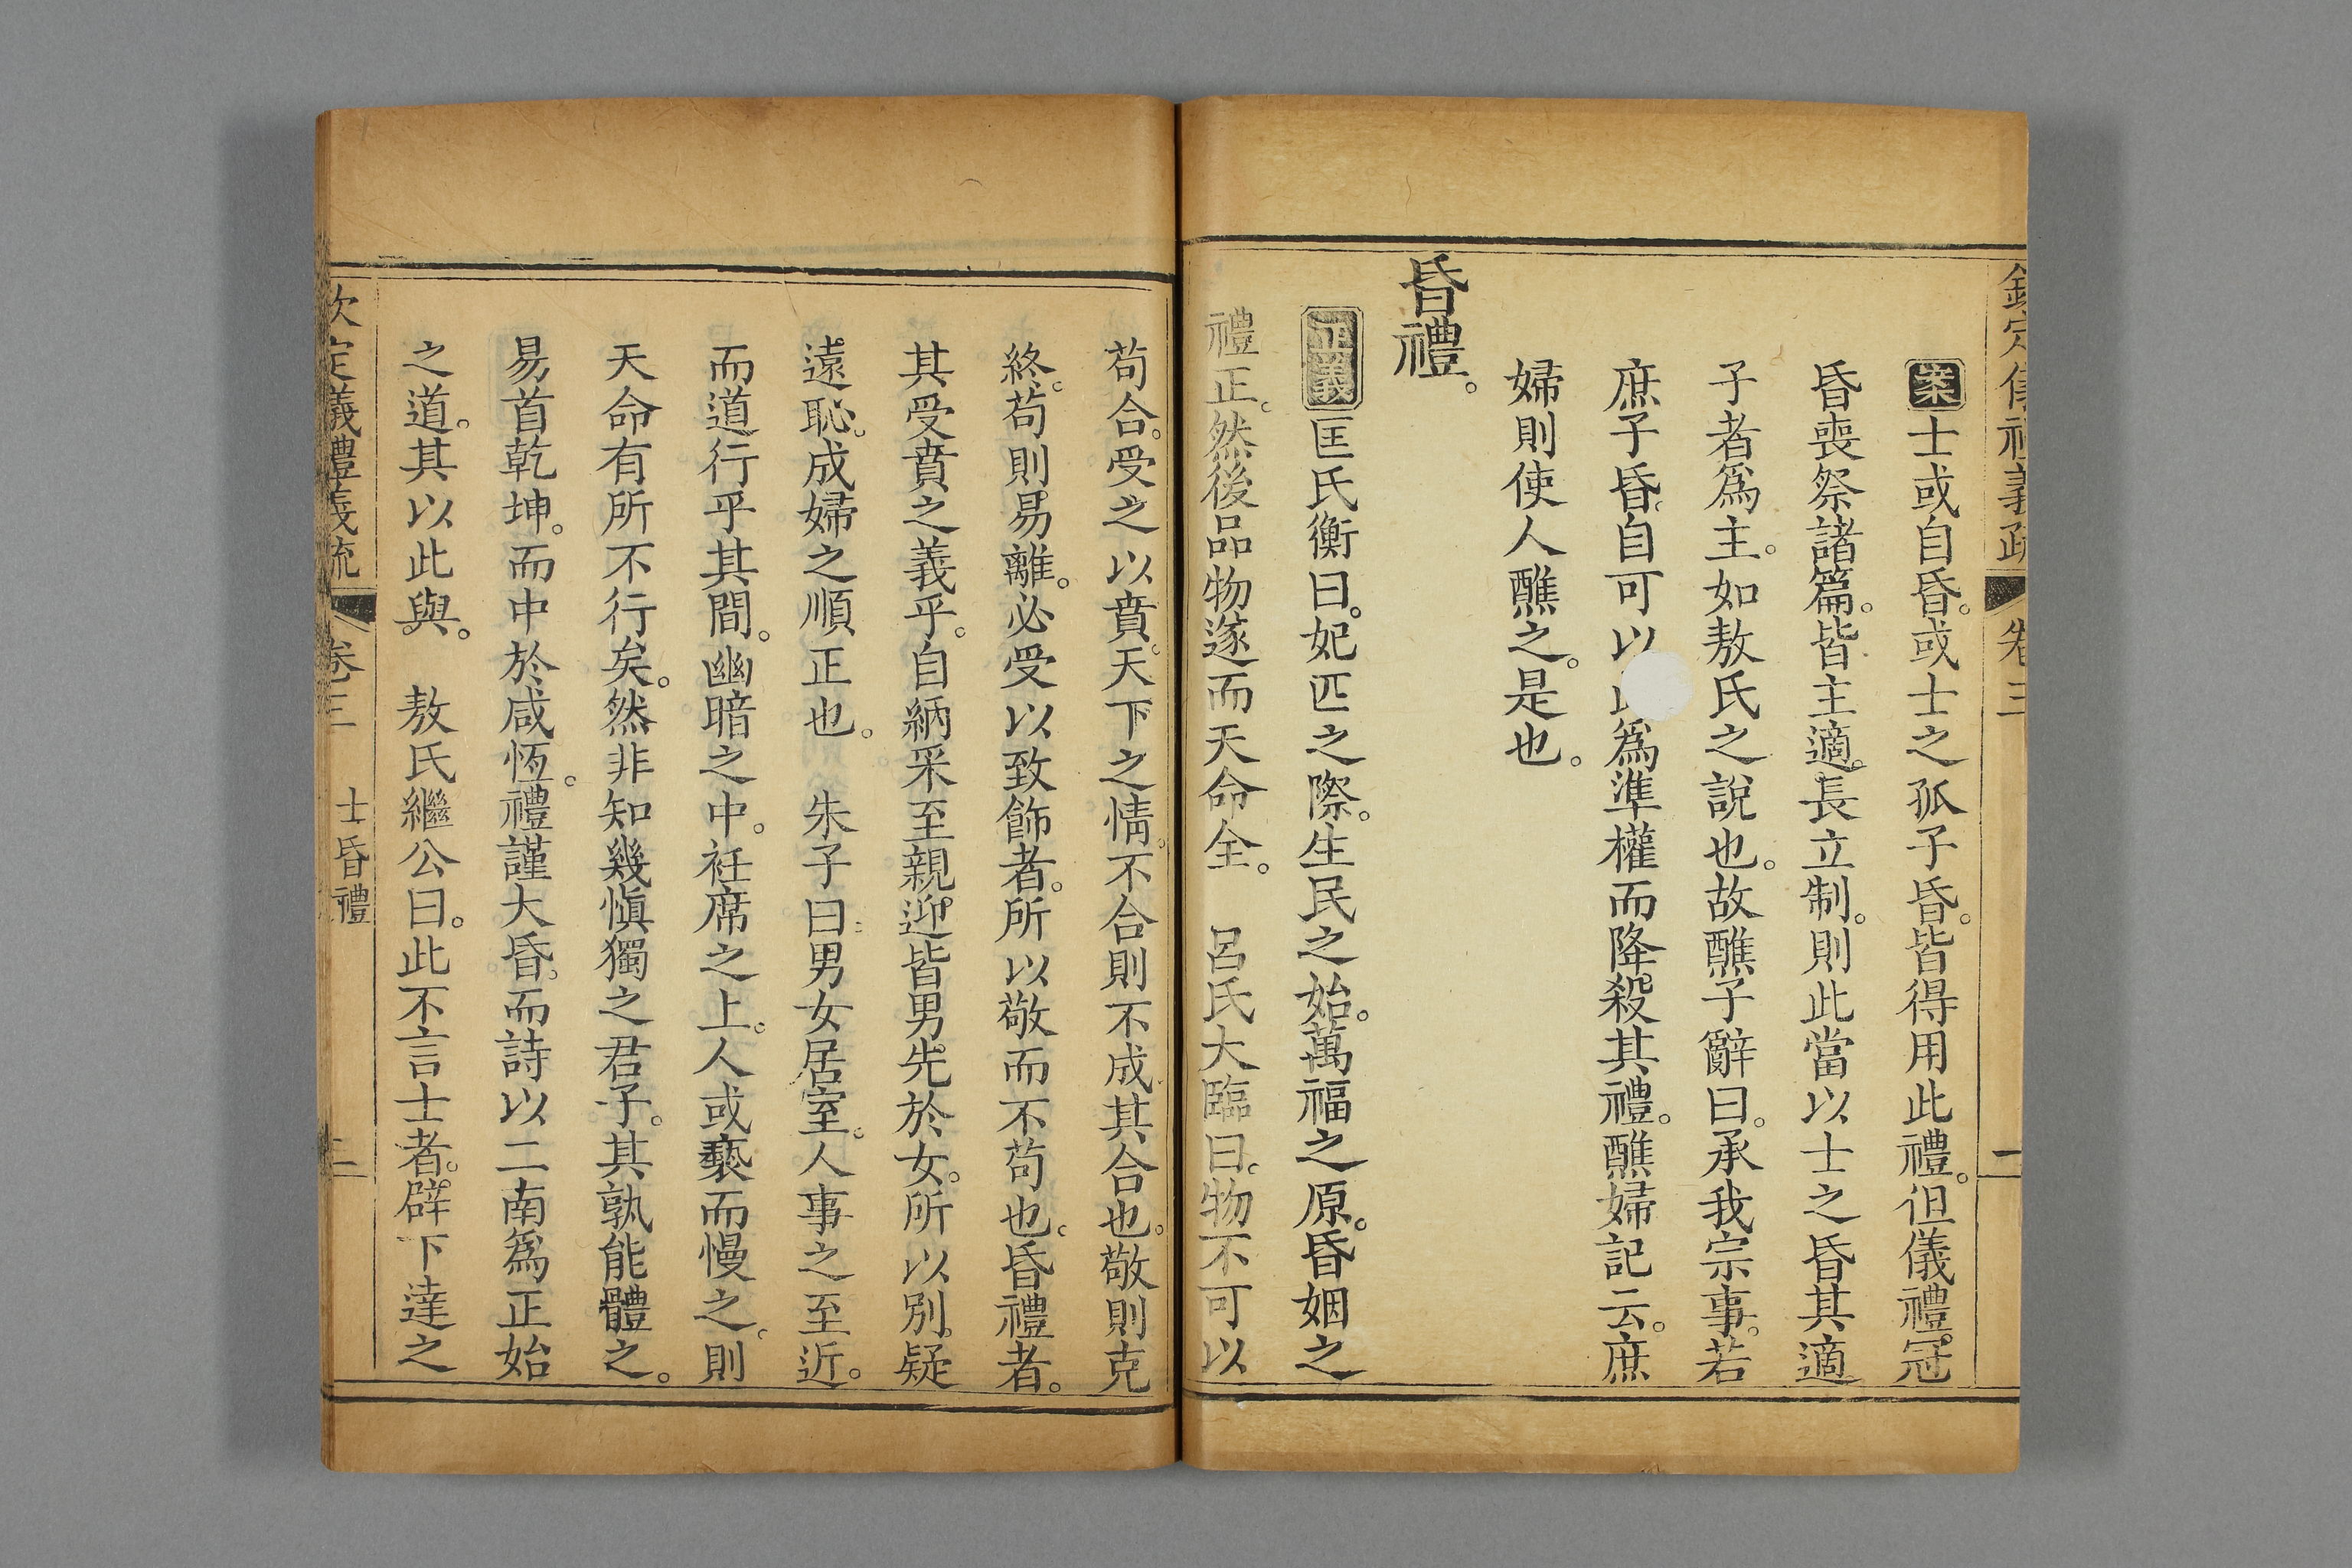 欽定儀禮義疏 卷三 二
案士或自昏。或士之孤子昏。皆得用此禮。但儀禮。冠
昏喪祭諸篇。皆主適。長立制。則此當以士之昏其適
子者爲主。如敖氏之說也。故醮子辭曰。承我宗事。若
庶子昏。自可以 爲準權而降殺其禮。醮婦記云。庶
婦則使人醮之。是也。
昏禮。
正義匡氏衡曰。妃匹之際。生民之始。萬福之原。昏姻之
禮正。然後品物遂而天命全。 呂氏大臨曰。物不可以
苟合。受之以賁。天下之情。不合則不成其合也。敬則克
終。苟則易離。必受以致飾者。所以敬而不苟也。昏禮者。
其受賁之義乎。自納采至親迎。皆男先於女。所以別。疑
遠恥。成婦之順正也。 朱子曰。男女居室。人事之至近。
而道行乎其間。幽暗之中。衽席之上。人或褻而慢之。則
天命有所不行矣。然非知幾愼獨之君子。其孰能體之。
易首乾坤。而中於咸恆。禮謹大昏。而詩以二南爲正始
之道。其以此與。 敖氏繼公曰。此不言士者。辟下達之
欽定儀禮義疏 卷三 士昏禮 三